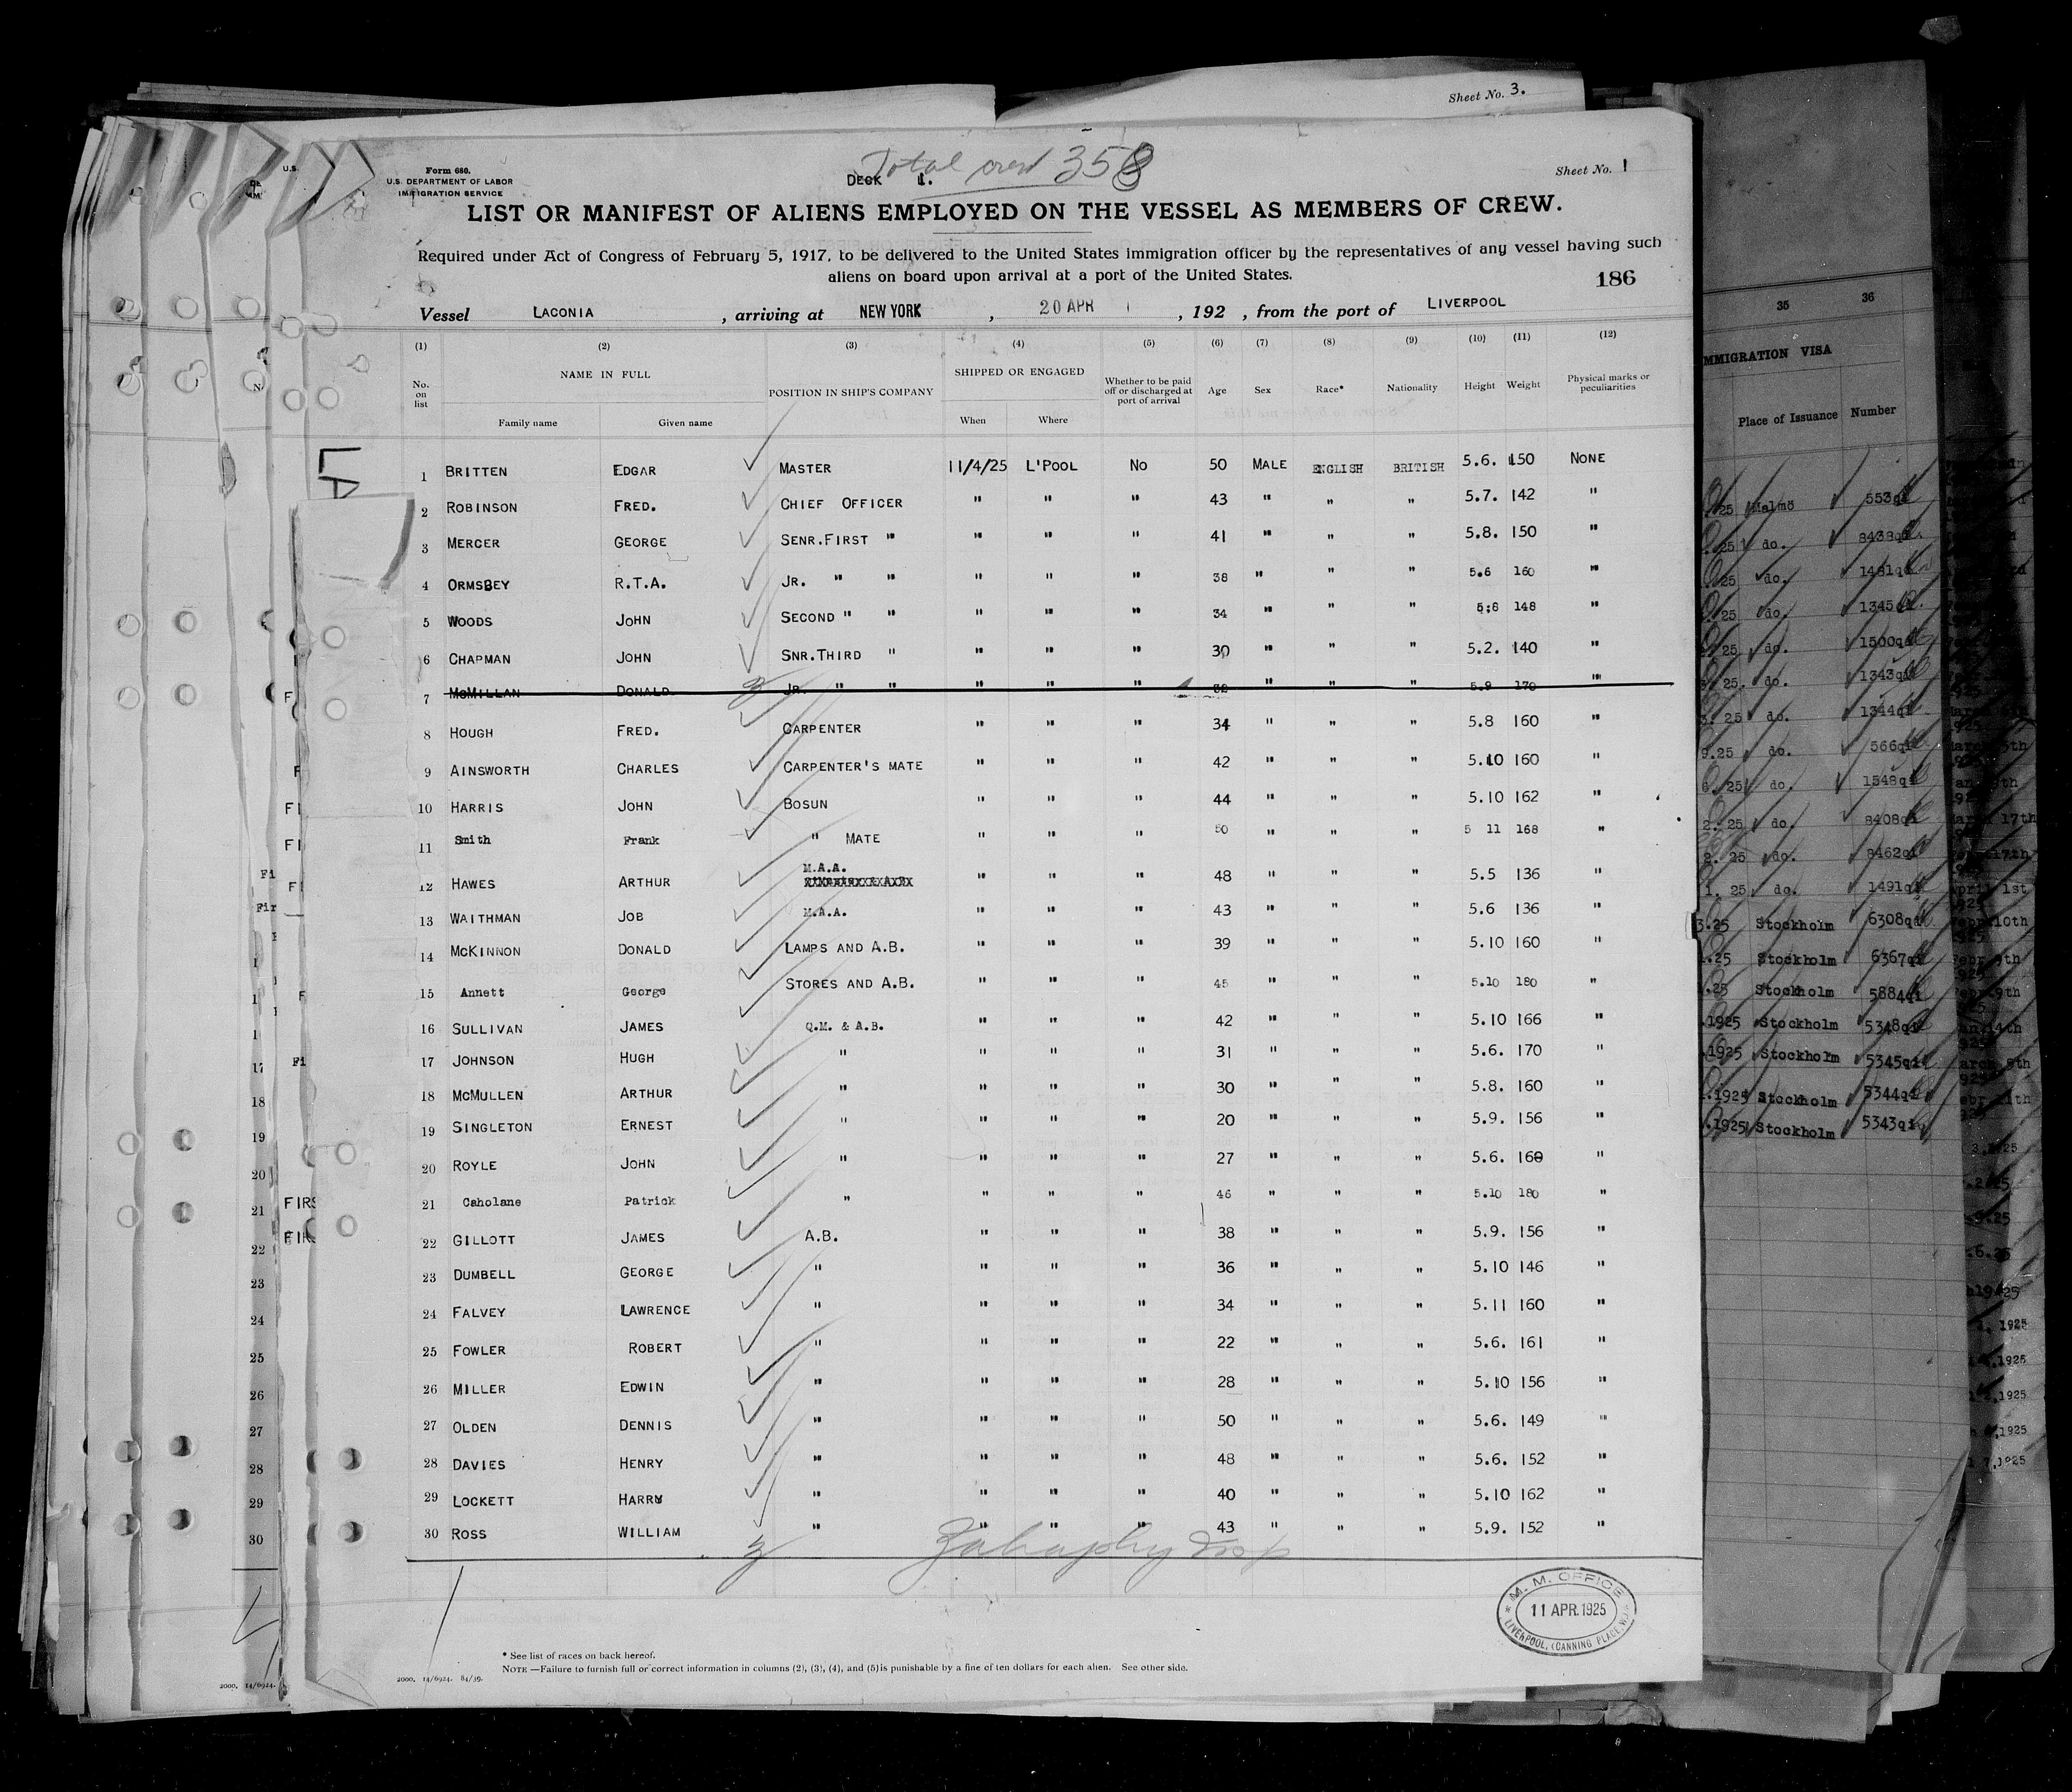 Sheet No. 3.
Total crew 358
Form 680.
U.S. DEPARTMENT OF LABOR
IMMIGRATION SERVICE
DECK 1.
Sheet No. 1
LIST OR MANIFEST OF ALIENS EMPLOYED ON THE VESSEL AS MEMBERS OF CREW.
Required under Act of Congress of February 5, 1917, to be delivered to the United States immigration officer by the representatives of any vessel having such
aliens on board upon arrival at a port of the United States.
186
Vessel LACONIA , arriving at NEW YORK , 20 APR , 192 , from the port of LIVERPOOL
(1) (2) (3) (4) (5) (6) (7) (8) (9) (10) (11) (12)
No. on list NAME IN FULL POSITION IN SHIP'S COMPANY SHIPPED OR ENGAGED Whether to be paid off or discharged at port of arrival Age Sex Race* Nationality Height Weight Physical marks or peculiarities
Family name Given name When Where
1 BRITTEN EDGAR MASTER 11/4/25 L'POOL NO 50 MALE ENGLISH BRITISH 5.6. 150 NONE
2 ROBINSON FRED. CHIEF OFFICER " " " 43 " " " 5.7. 142 "
3 MERCER GEORGE SENR.FIRST " " " " 41 " " " 5.8. 150 "
4 ORMSBEY R.T.A. JR. " " " " " 38 " " " 5.6 160 "
5 WOODS JOHN SECOND " " " " " 34 " " " 5;8 148 "
6 CHAPMAN JOHN SNR.THIRD " " " " 30 " " " 5.2. 140 "
7 MCMILLAN DONALD JR. " " " " " 32 " " " 5.9 170 "
8 HOUGH FRED. CARPENTER " " " 34 " " " 5.8 160 "
9 AINSWORTH CHARLES CARPENTER'S MATE " " " 42 " " " 5.10 160 "
10 HARRIS JOHN BOSUN " " " 44 " " " 5.10 162 "
11 Smith Frank " MATE " " " 50 " " " 5 11 168 "
12 HAWES ARTHUR M.A.A. " " " 48 " " " 5.5 136 "
13 WAITHMAN JOB M.A.A. " " " 43 " " " 5.6 136 "
14 MCKINNON DONALD LAMPS AND A.B. " " " 39 " " " 5.10 160 "
15 Annett George STORES AND A.B. " " " 45 " " " 5.10 180 "
16 SULLIVAN JAMES Q.M. & A.B. " " " 42 " " " 5.10 166 "
17 JOHNSON HUGH " " " " 31 " " " 5.6. 170 "
18 MCMULLEN ARTHUR " " " " 30 " " " 5.8. 160 "
19 SINGLETON ERNEST " " " " 20 " " " 5.9. 156 "
20 ROYLE JOHN " " " " 27 " " " 5.6. 160 "
21 Caholane Patrick " " " " 46 " " " 5.10 180 "
22 GILLOTT JAMES A.B. " " " 38 " " " 5.9. 156 "
23 DUMBELL GEORGE " " " " 36 " " " 5.10 146 "
24 FALVEY LAWRENCE " " " " 34 " " " 5.11 160 "
25 FOWLER ROBERT " " " " 22 " " " 5.6. 161 "
26 MILLER EDWIN " " " " 28 " " " 5.10 156 "
27 OLDEN DENNIS " " " " 50 " " " 5.6. 149 "
28 DAVIES HENRY " " " " 48 " " " 5.6. 152 "
29 LOCKETT HARRY " " " " 40 " " " 5.10 162 "
30 ROSS WILLIAM " " " " 43 " " " 5.9. 152 "
M. M. OFFICE
11 APR. 1925
LIVERPOOL, (CANNING PLACE, W.)
* See list of races on back hereof.
NOTE —Failure to furnish full or correct information in columns (2), (3), (4), and (5) is punishable by a fine of ten dollars for each alien. See other side.
2000. 14/6924. 84/39.
2000. 14/6924.
U.S.
LA
18
19
20
21
22
23
24
25
26
27
28
29
30
FIRS
35 36
IMMIGRATION VISA
Place of Issuance Number
25 Malmö 553
25 do. 8438
25 do. 1481
25 do. 1345
25 do. 1500
25. do. 1343
25 do. 1344
9.25 do. 566
6. 25 do. 1548
2. 25 do. 8408
2. 25 do. 8462
1. 25 do. 1491
3.25 Stockholm 6308
.25 Stockholm 6367
.25 Stockholm 5884
.1925 Stockholm 5348
.1925 Stockholm 5345
.1925 Stockholm 5344
.1925 Stockholm 5343